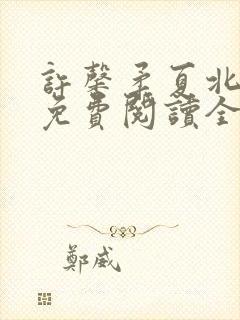 許馨矛夏北
免費閱讀全
鄭威